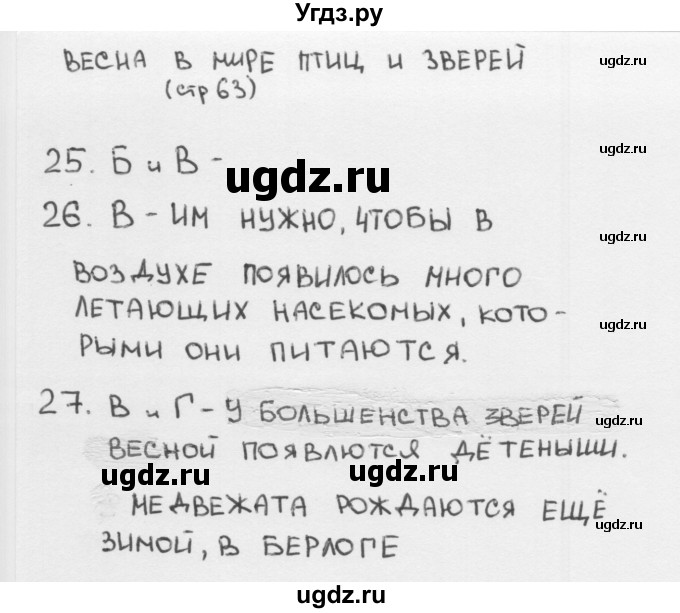 Угдз.ру
ВЕСНА В МИРЕ ПТИЦ И ЗВЕРЕЙ
(стр 63)
ugdz.ru
25. Б и В -
ugdz.ru
ugdz.ru
26. В - ИМ НУЖНО, ЧТОБЫ В
ugdz.ru
ВОЗДУХЕ ПОЯВИЛОСЬ МНОГО
ЛЕТАЮЩИХ НАСЕКОМЫХ, КОТО-
ugdz.ru
РЫМИ ОНИ ПИТАЮТСЯ.
27. В и Г - У БОЛЬШЕНСТВА ЗВЕРЕЙ
ugdz.ru
ВЕСНОЙ ПОЯВЛЮТСЯ ДЕТЕНЫШИ.
ugdz.ru
ugdz.ru
МЕДВЕЖАТА РОЖДАЮТСЯ ЕЩЁ
ugdz.ru
ЗИМОЙ, В БЕРЛОГЕ
ugdz.ru